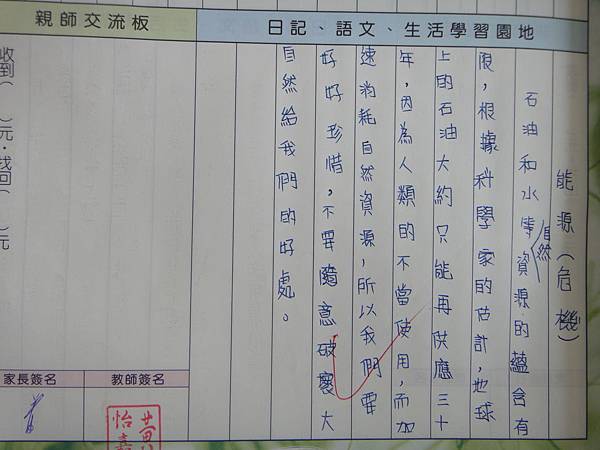 親師交流板
日記、語文、生活學習園地
能源(危機)
石油和水等自然資源的蘊含有
限,根據科學家的估計,地球
上的石油大約只能再供應三十
年,因為人類的不當使用,而加
速消耗自然資源,所以我們要
好好珍惜,不要隨意破壞大
自然給我們的好處。
收到( )元.找回( )元
家長簽名
教師簽名
黃
怡嘉